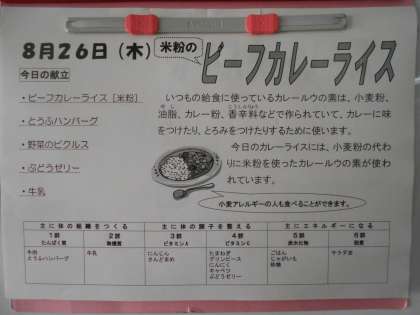 8月26日（木）
米粉の
ビーフカレーライス
今日の献立
・ビーフカレーライス［米粉］
・とうふハンバーグ
・野菜のピクルス
・ぶどうゼリー
・牛乳
いつもの給食に使っているカレールウの素は、小麦粉、
油脂、カレー粉、香辛料などで作られていて、カレーに味
をつけたり、とろみをつけたりするために使います。
今日のカレーライスには、小麦粉の代わ
りに米粉を使ったカレールウの素が使わ
れています。
小麦アレルギーの人も食べることができます。
主に体の組織をつくる 主に体の調子を整える 主にエネルギーになる
1群 2群 3群 4群 5群 6群
たんぱく質 無機質 ビタミンA ビタミンC 炭水化物 脂質
牛肉 牛乳 にんじん たまねぎ ごはん サラダ油
とうふハンバーグ さんどまめ グリンピース じゃがいも
にんにく 砂糖
キャベツ
ぶどうゼリー